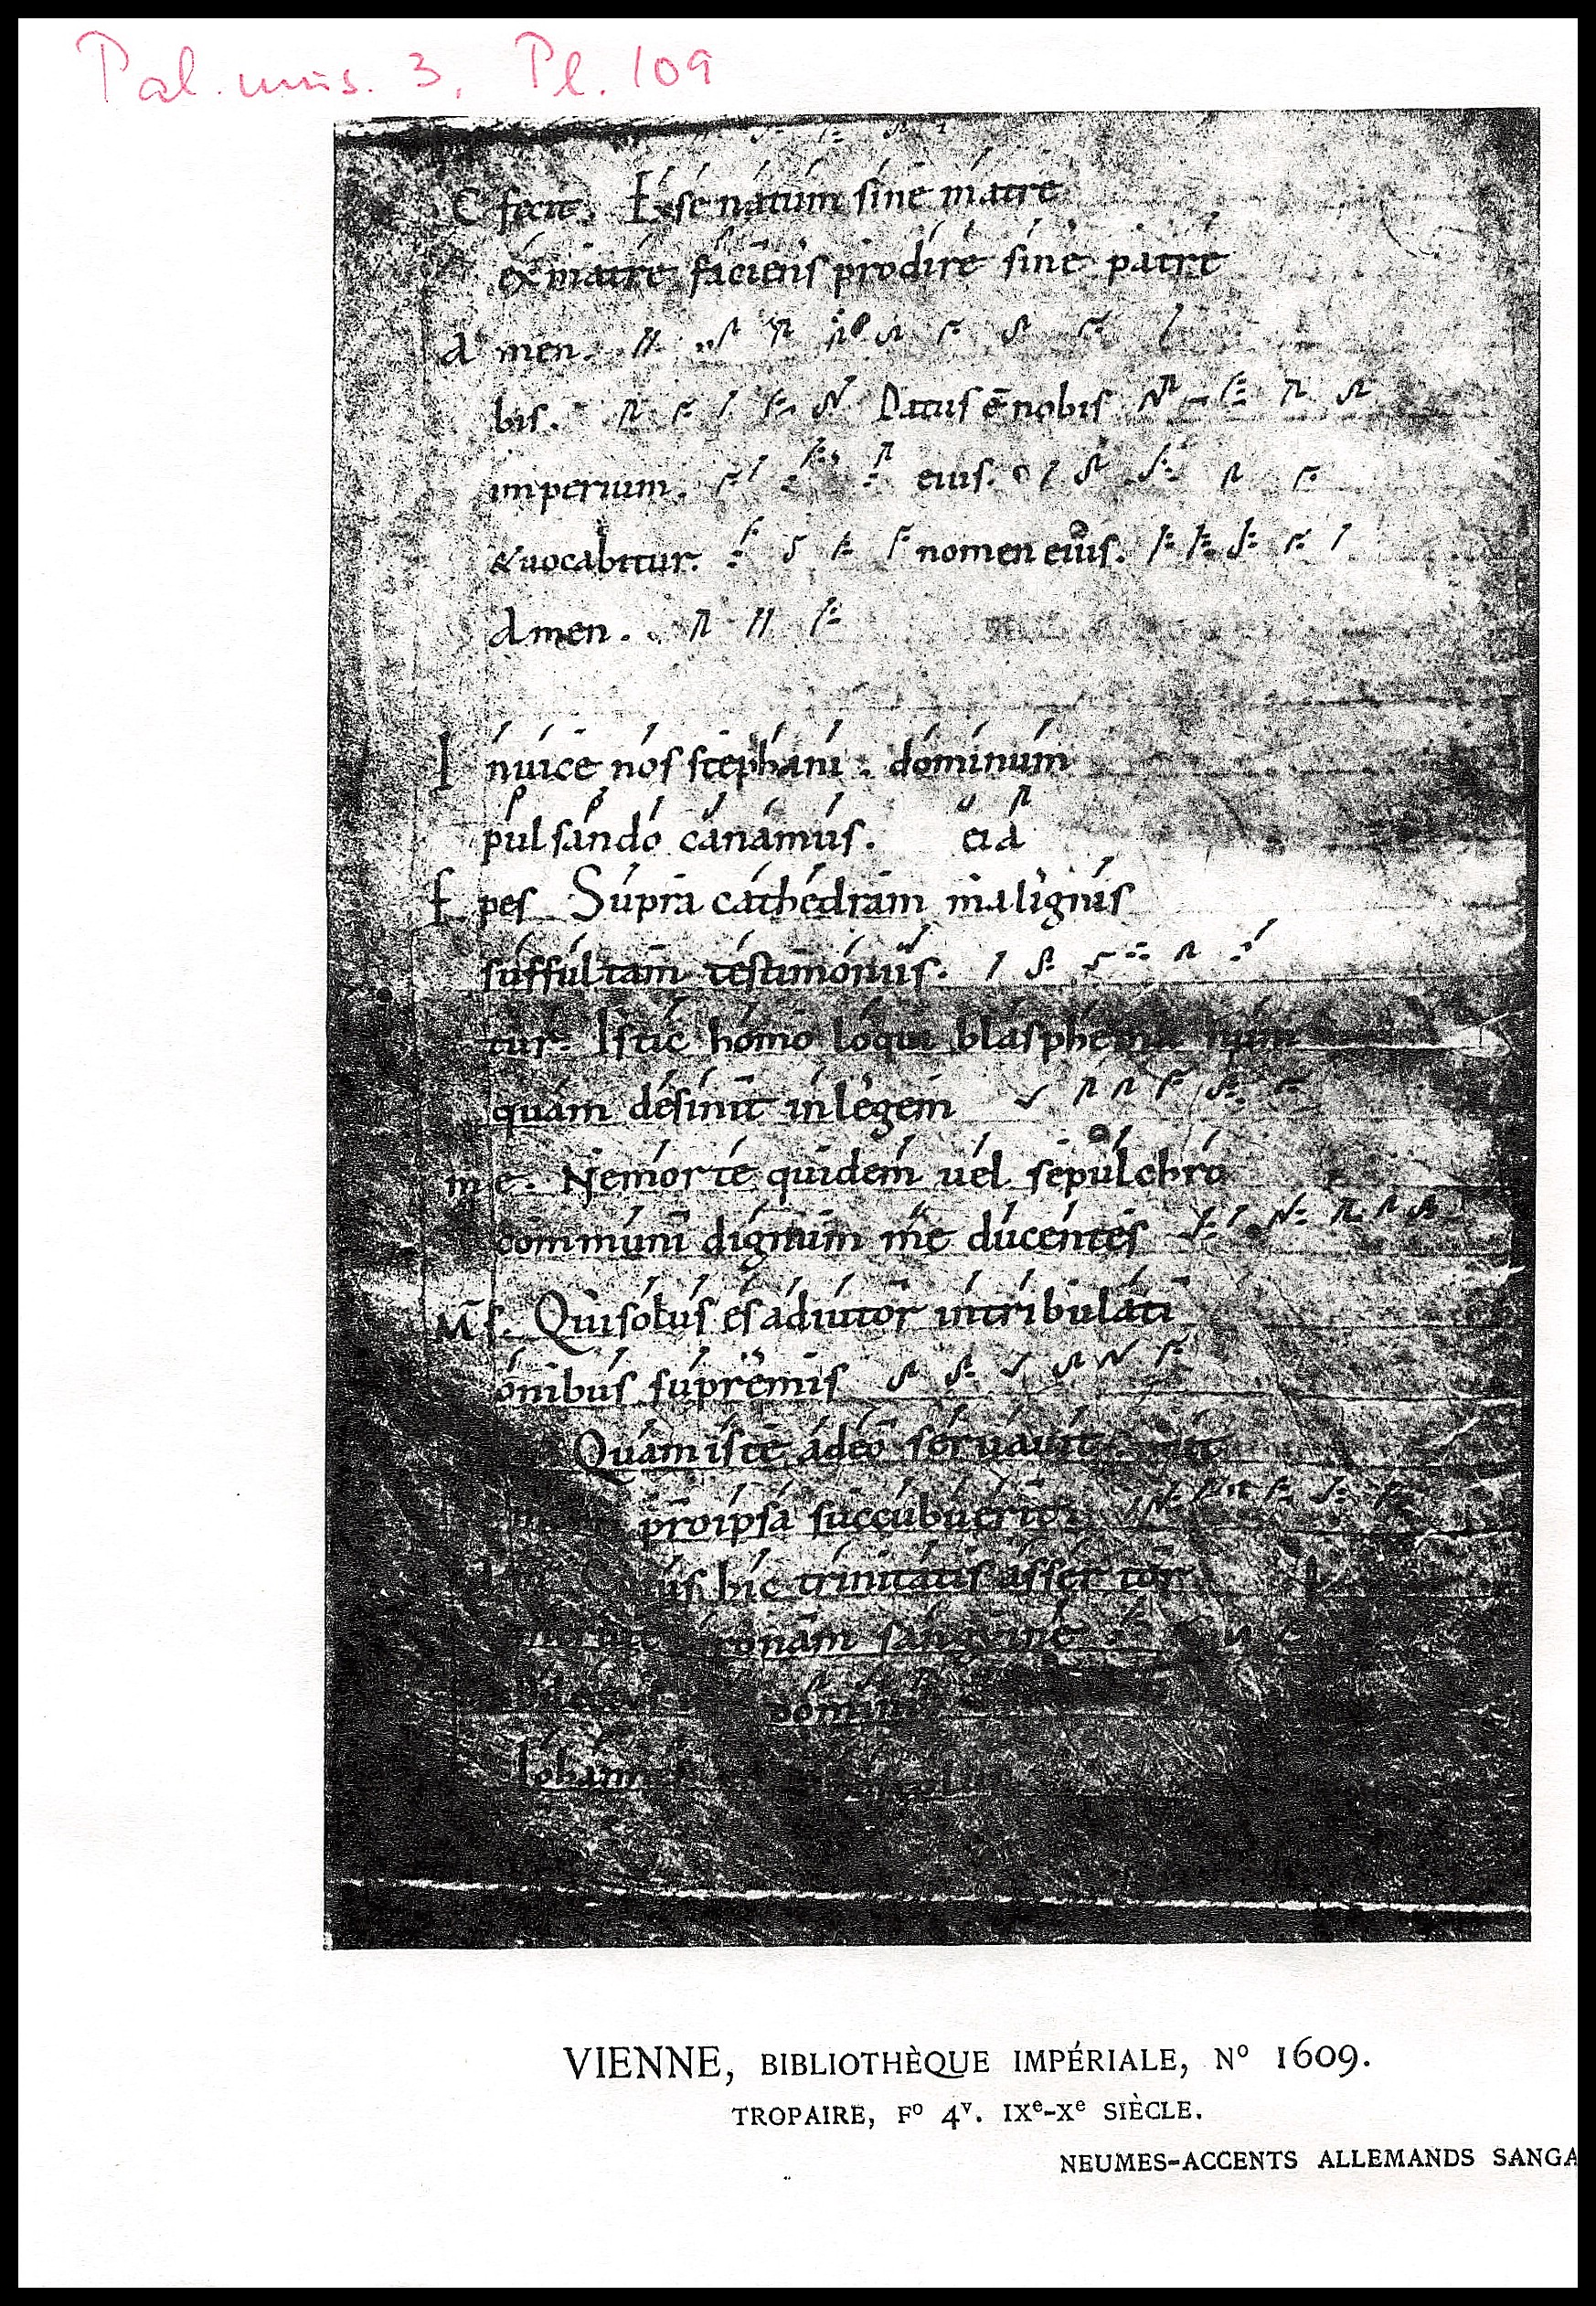 Pal. mus. 3, Pl. 109
fecit. Ex se natum sine matre
ex matre faciens prodire sine patre
A men.
bis. Datus ē nobis
imperium. eius.
&uocabitur. nomen eius.
Amen.
I nuice nos stephani. dominum
pulsando canamus. eia
E pes Supra cathedram malignis
suffultam testimoniis.
tur. Istic homo loqui blasphema num
quam desinit in legem
me. Ne morte quidem uel sepulchro
communi dignum me ducentes
Qui solus es adiutor in tribulati
onibus supremis
Quam iste adeo seruauit
pro ipsa succubuerit
hic trinitatis assertor
sanguine
VIENNE, BIBLIOTHÈQUE IMPÉRIALE, Nº 1609.
TROPAIRE, Fº 4ᵛ. IXᵉ-Xᵉ SIÈCLE.
NEUMES-ACCENTS ALLEMANDS SANGA